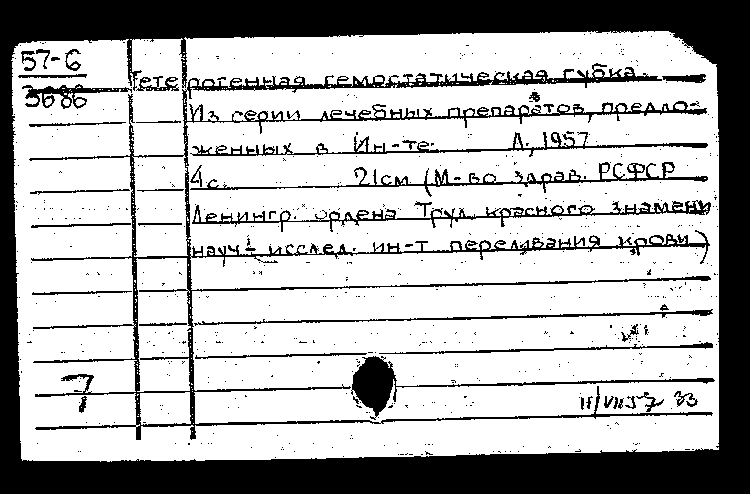 57-6
3686
Гетерогенная гемостатическая губка.
Из серии лечебных препаратов, предло-
женных в Ин-те. Л., 1957
4с. 21см (М-во здрав. РСФСР
Ленингр. ордена Труд. красного знамени
науч.-исслед. ин-т переливания крови)
7
33